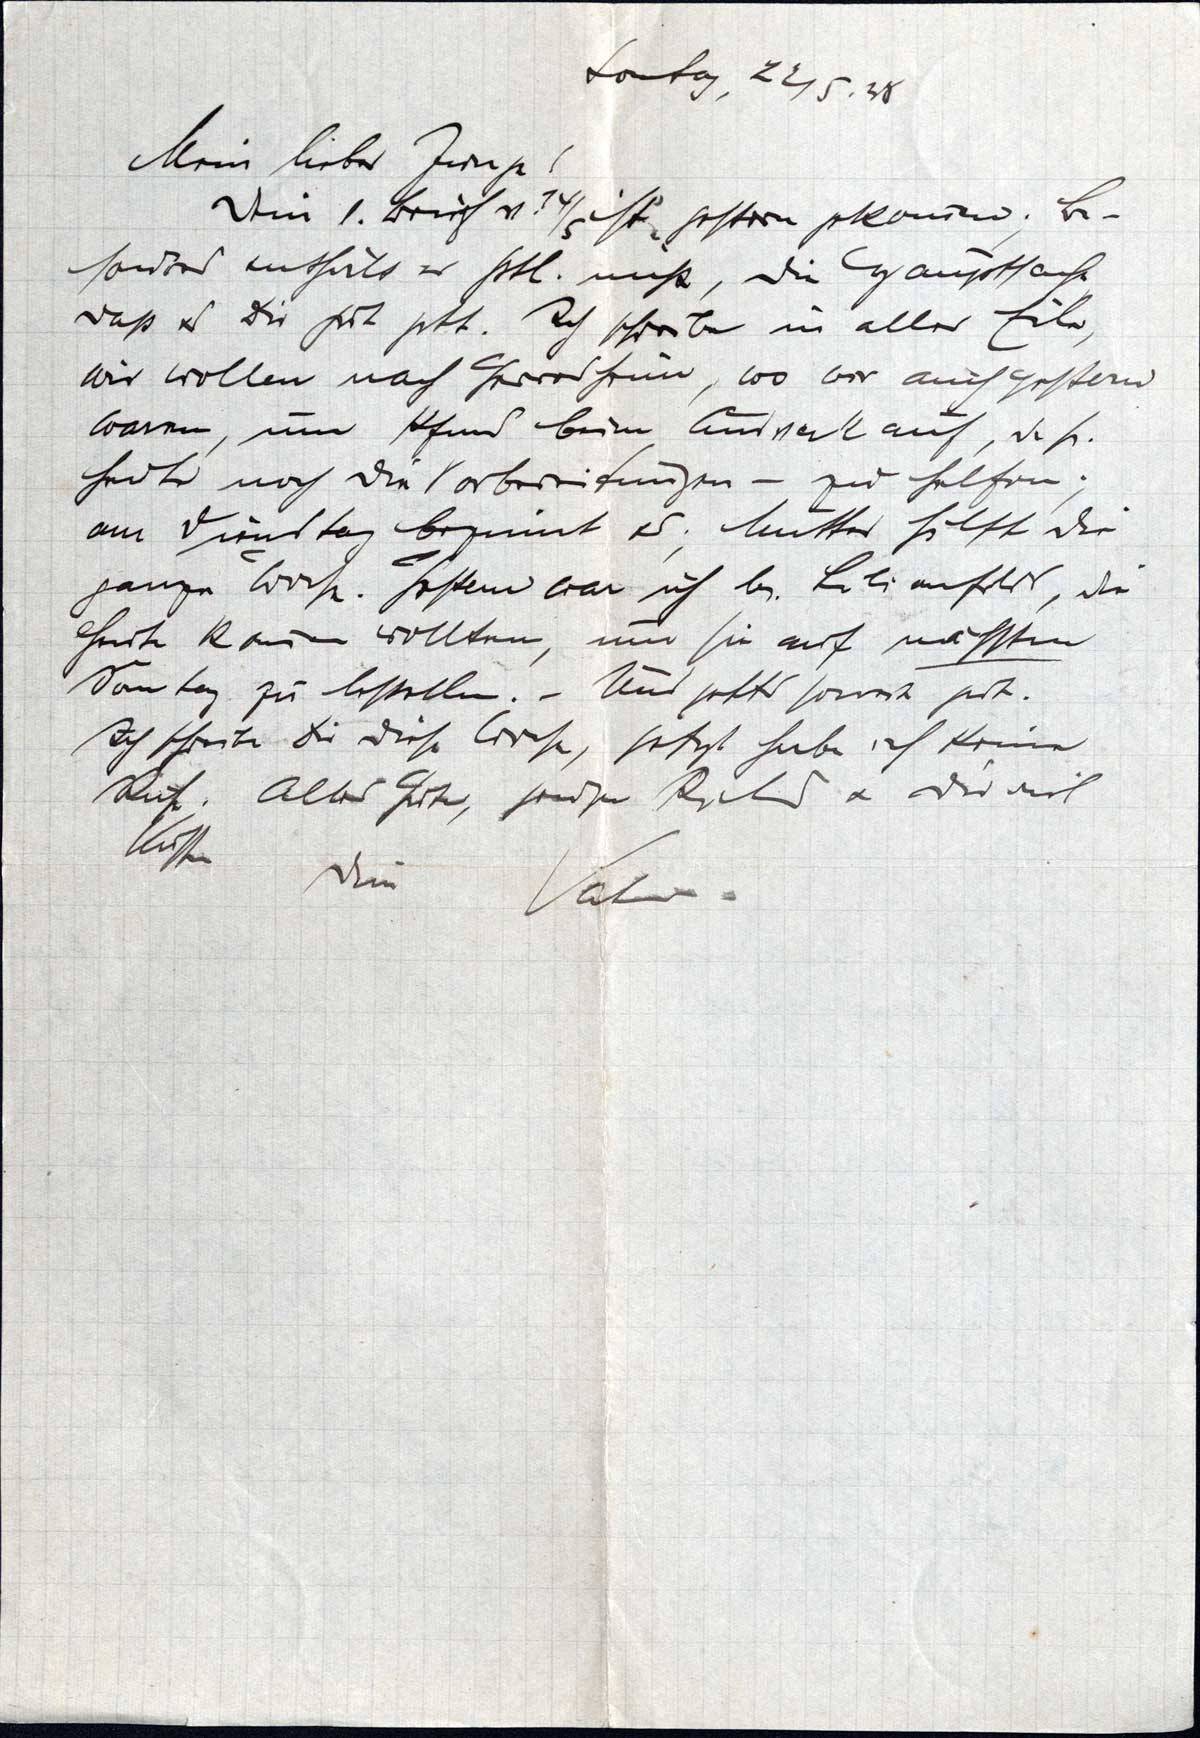 Sonntag, 22/5.38
Mein lieber Junge!
Dein l. Brief v. 14/5 ist gestern gekommen; be-
sonderes enthielt er nicht, die Hauptsache
daß es Dir gut geht. Ich schreibe in aller Eile,
wir wollen nach, wo wir auch gestern
waren, um beim Ausverkauf, d. h.
heute noch die Vorbereitungen – zu helfen;
am Dienstag beginnt es; Mutter hilft die
ganze Woche. Gestern war ich bei Lilienfelds, die
heute kommen wollten, um sie auf nächsten
Sonntag zu bestellen. – Uns geht's soweit gut.
Ich schreibe Dir diese Woche, jetzt habe ich keine
Ruhe. Alles Gute, & Dir viel
Küsse
Dein Vater.